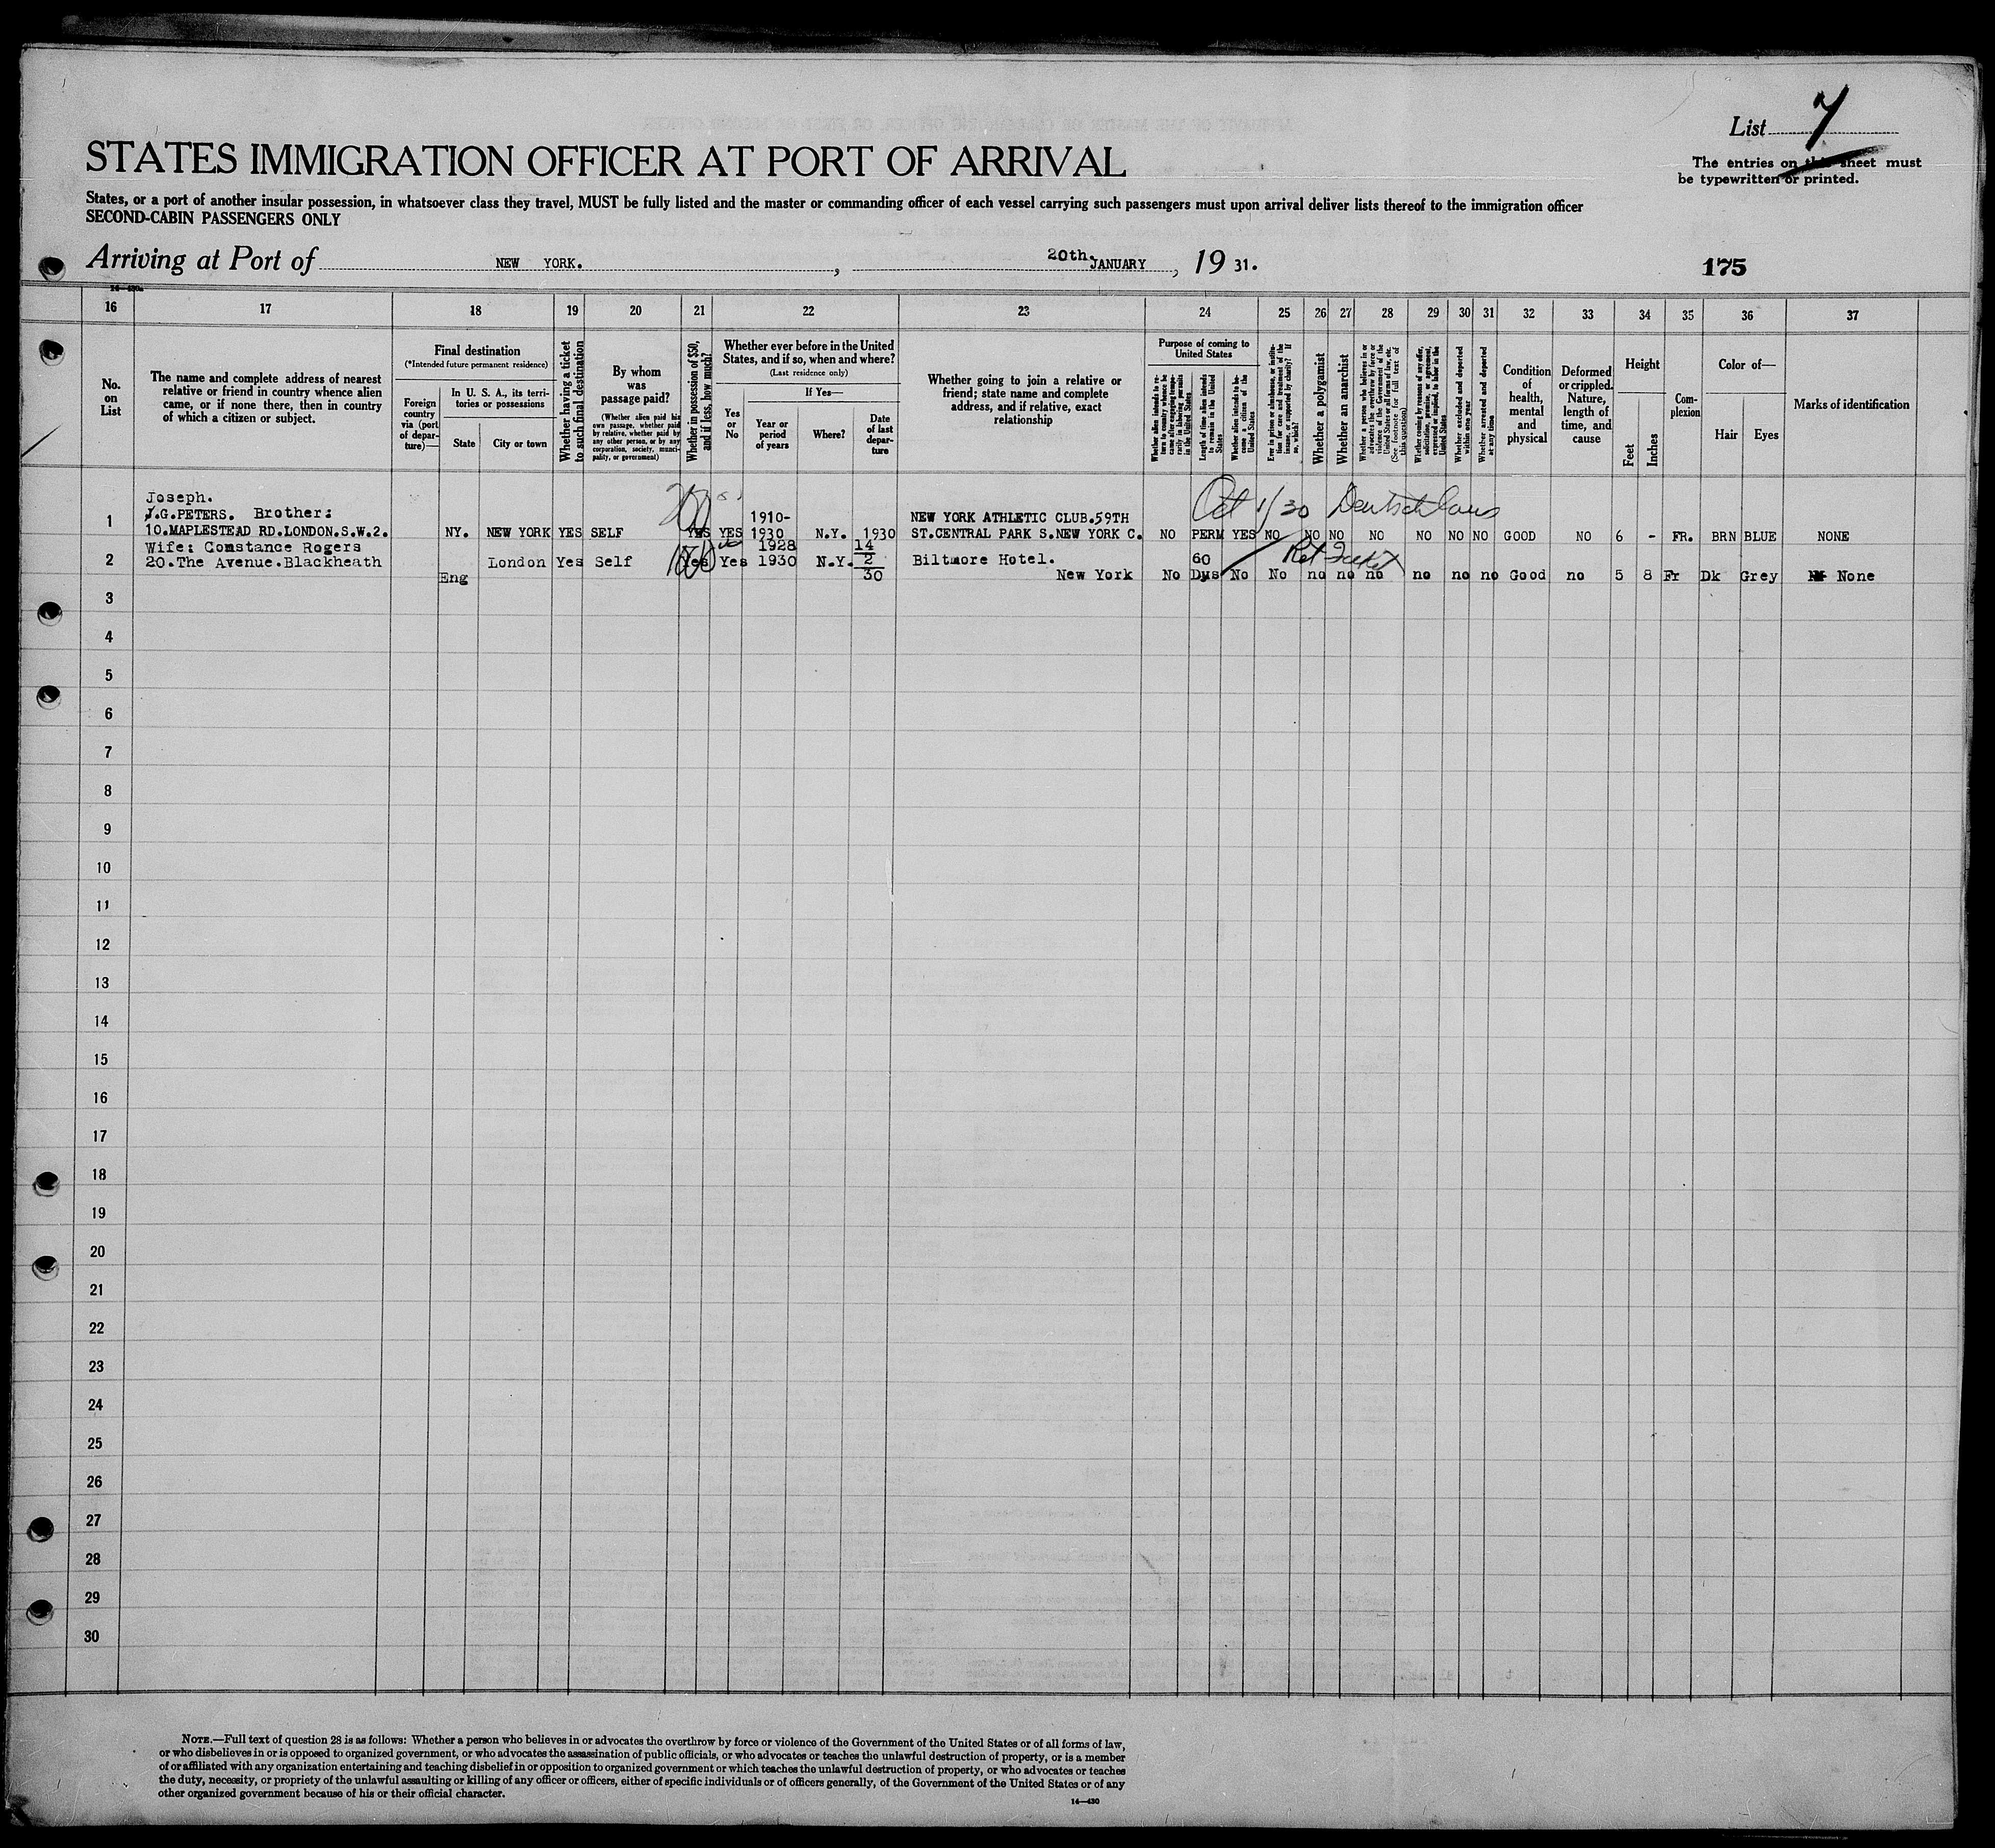 List 7
The entries on this sheet must
be typewritten or printed.
STATES IMMIGRATION OFFICER AT PORT OF ARRIVAL
States, or a port of another insular possession, in whatsoever class they travel, MUST be fully listed and the master or commanding officer of each vessel carrying such passengers must upon arrival deliver lists thereof to the immigration officer
SECOND-CABIN PASSENGERS ONLY
Arriving at Port of NEW YORK. , 20th. JANUARY , 19 31.
175
16 17 18 19 20 21 22 23 24 25 26 27 28 29 30 31 32 33 34 35 36 37
No. on List
The name and complete address of nearest
relative or friend in country whence alien
came, or if none there, then in country
of which a citizen or subject.
Final destination
(*Intended future permanent residence)
Foreign
country
via (port
of depar-
ture)—
In U. S. A., its terri-
tories or possessions
State
City or town
Whether having a ticket
to such final destination
By whom
was
passage paid?
(Whether alien paid his
own passage, whether paid
by relative, whether paid by
any other person, or by any
corporation, society, munici-
pality, or government)
Whether in possession of $50,
and if less, how much?
Whether ever before in the United
States, and if so, when and where?
(Last residence only)
Yes
or
No
If Yes—
Year or
period
of years
Where?
Date
of last
depar-
ture
Whether going to join a relative or
friend; state name and complete
address, and if relative, exact
relationship
Purpose of coming to
United States
Whether alien intends to re-
turn to country whence he
came after engaging tempo-
rarily in laboring pursuits
in the United States
Length of time alien intends
to remain in the United
States
Whether alien intends to be-
come a citizen of the
United States
Ever in prison or almshouse, or institu-
tion for care and treatment of the
insane, or supported by charity? If
so, which?
Whether a polygamist
Whether an anarchist
Whether a person who believes in or
advocates the overthrow by force or
violence of the Government of the
United States or all forms of law, etc.
(See footnote for full text of
this question)
Whether coming by reasons of any offer,
solicitation, promise, or agreement,
expressed or implied, to labor in the
United States
Whether excluded and deported
within one year
Whether arrested and deported
at any time
Condition
of
health,
mental
and
physical
Deformed
or crippled.
Nature,
length of
time, and
cause
Height
Feet
Inches
Com-
plexion
Color of—
Hair
Eyes
Marks of identification
Joseph.
J.G.PETERS. Brother:
200
1910-
NEW YORK ATHLETIC CLUB.59TH
Oct 1/30 Deutschland
1 10.MAPLESTEAD RD.LONDON.S.W.2. NY. NEW YORK YES SELF YES YES 1930 N.Y. 1930 ST.CENTRAL PARK S.NEW YORK C. NO PERM YES NO NO NO NO NO NO NO GOOD NO 6 - FR. BRN BLUE NONE
Wife: Constance Rogers 1928 14
2 20.The Avenue.Blackheath London Yes Self Yes Yes 1930 N.Y. 2 Biltmore Hotel. 60
Eng 30 New York No Dys No No no no no no no no Good no 5 8 Fr Dk Grey None
3
4
5
6
7
8
9
10
11
12
13
14
15
16
17
18
19
20
21
22
23
24
25
26
27
28
29
30
NOTE.—Full text of question 28 is as follows: Whether a person who believes in or advocates the overthrow by force or violence of the Government of the United States or of all forms of law,
or who disbelieves in or is opposed to organized government, or who advocates the assassination of public officials, or who advocates or teaches the unlawful destruction of property, or is a member
of or affiliated with any organization entertaining and teaching disbelief in or opposition to organized government or which teaches the unlawful destruction of property, or who advocates or teaches
the duty, necessity, or propriety of the unlawful assaulting or killing of any officer or officers, either of specific individuals or of officers generally, of the Government of the United States or of any
other organized government because of his or their official character.
14—430